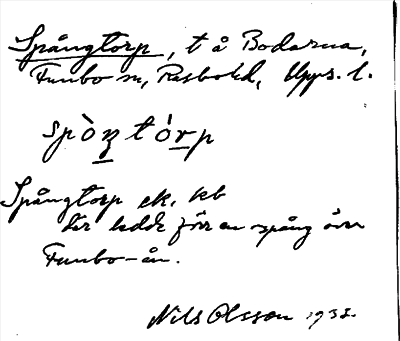 Spångtorp, t å Bodarna,
Funbo sn, Rasbo hd, Upps. l.
spòŋtórp
Spångtorp ek. kb
där ledde förr en spång över
Funbo-ån.
Nils Olsson 1932.